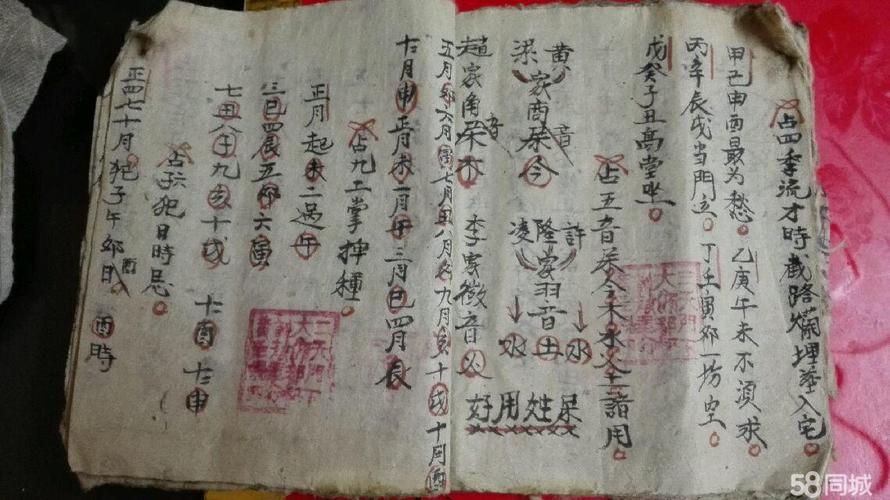 占四季流才時截路爛埋塟入宅
甲己申酉最为愁 乙庚午未不須求
丙辛辰戌当門立 丁壬寅卯一坊空
戊癸子丑高堂坐
占五音属金木水火土諸用
黄 音 許
梁 家商属金 隆家羽音土 水
凌 水
趙家角音属木 李家徵音火
好用姓足
五月卯六月寅七月丑八月子九月亥十月戌十一月酉
十二月申正月未二月午三月巳四月辰
占九工掌抻種
正月起未二過午
三巳四辰五卯六寅
七丑八子九亥十戌 十一酉 十二申
占孩犯日時忌
正四七十月犯子午卯酉日 酉時
58同城